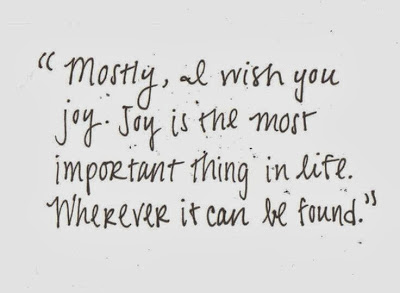 “Mostly, I wish you
joy. Joy is the most
important thing in life.
Wherever it can be found.”